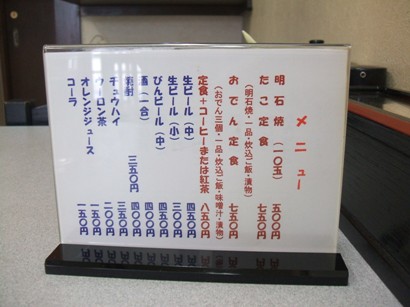 メニュー
明石焼（一〇玉） 五〇〇円
たこ定食 七五〇円
（明石焼・一品・炊込ご飯・漬物）
おでん定食 七五〇円
（おでん三個・一品・炊込ご飯・味噌汁・漬物）
定食＋コーヒーまたは紅茶 八五〇円
生ビール（中） 四五〇円
生ビール（小） 三〇〇円
びんビール（中） 五五〇円
酒（一合） 四〇〇円
焼酎 三五〇円 四〇〇円
チュウハイ 三五〇円
ウーロン茶 二〇〇円
オレンジジュース 一五〇円
コーラ 一五〇円